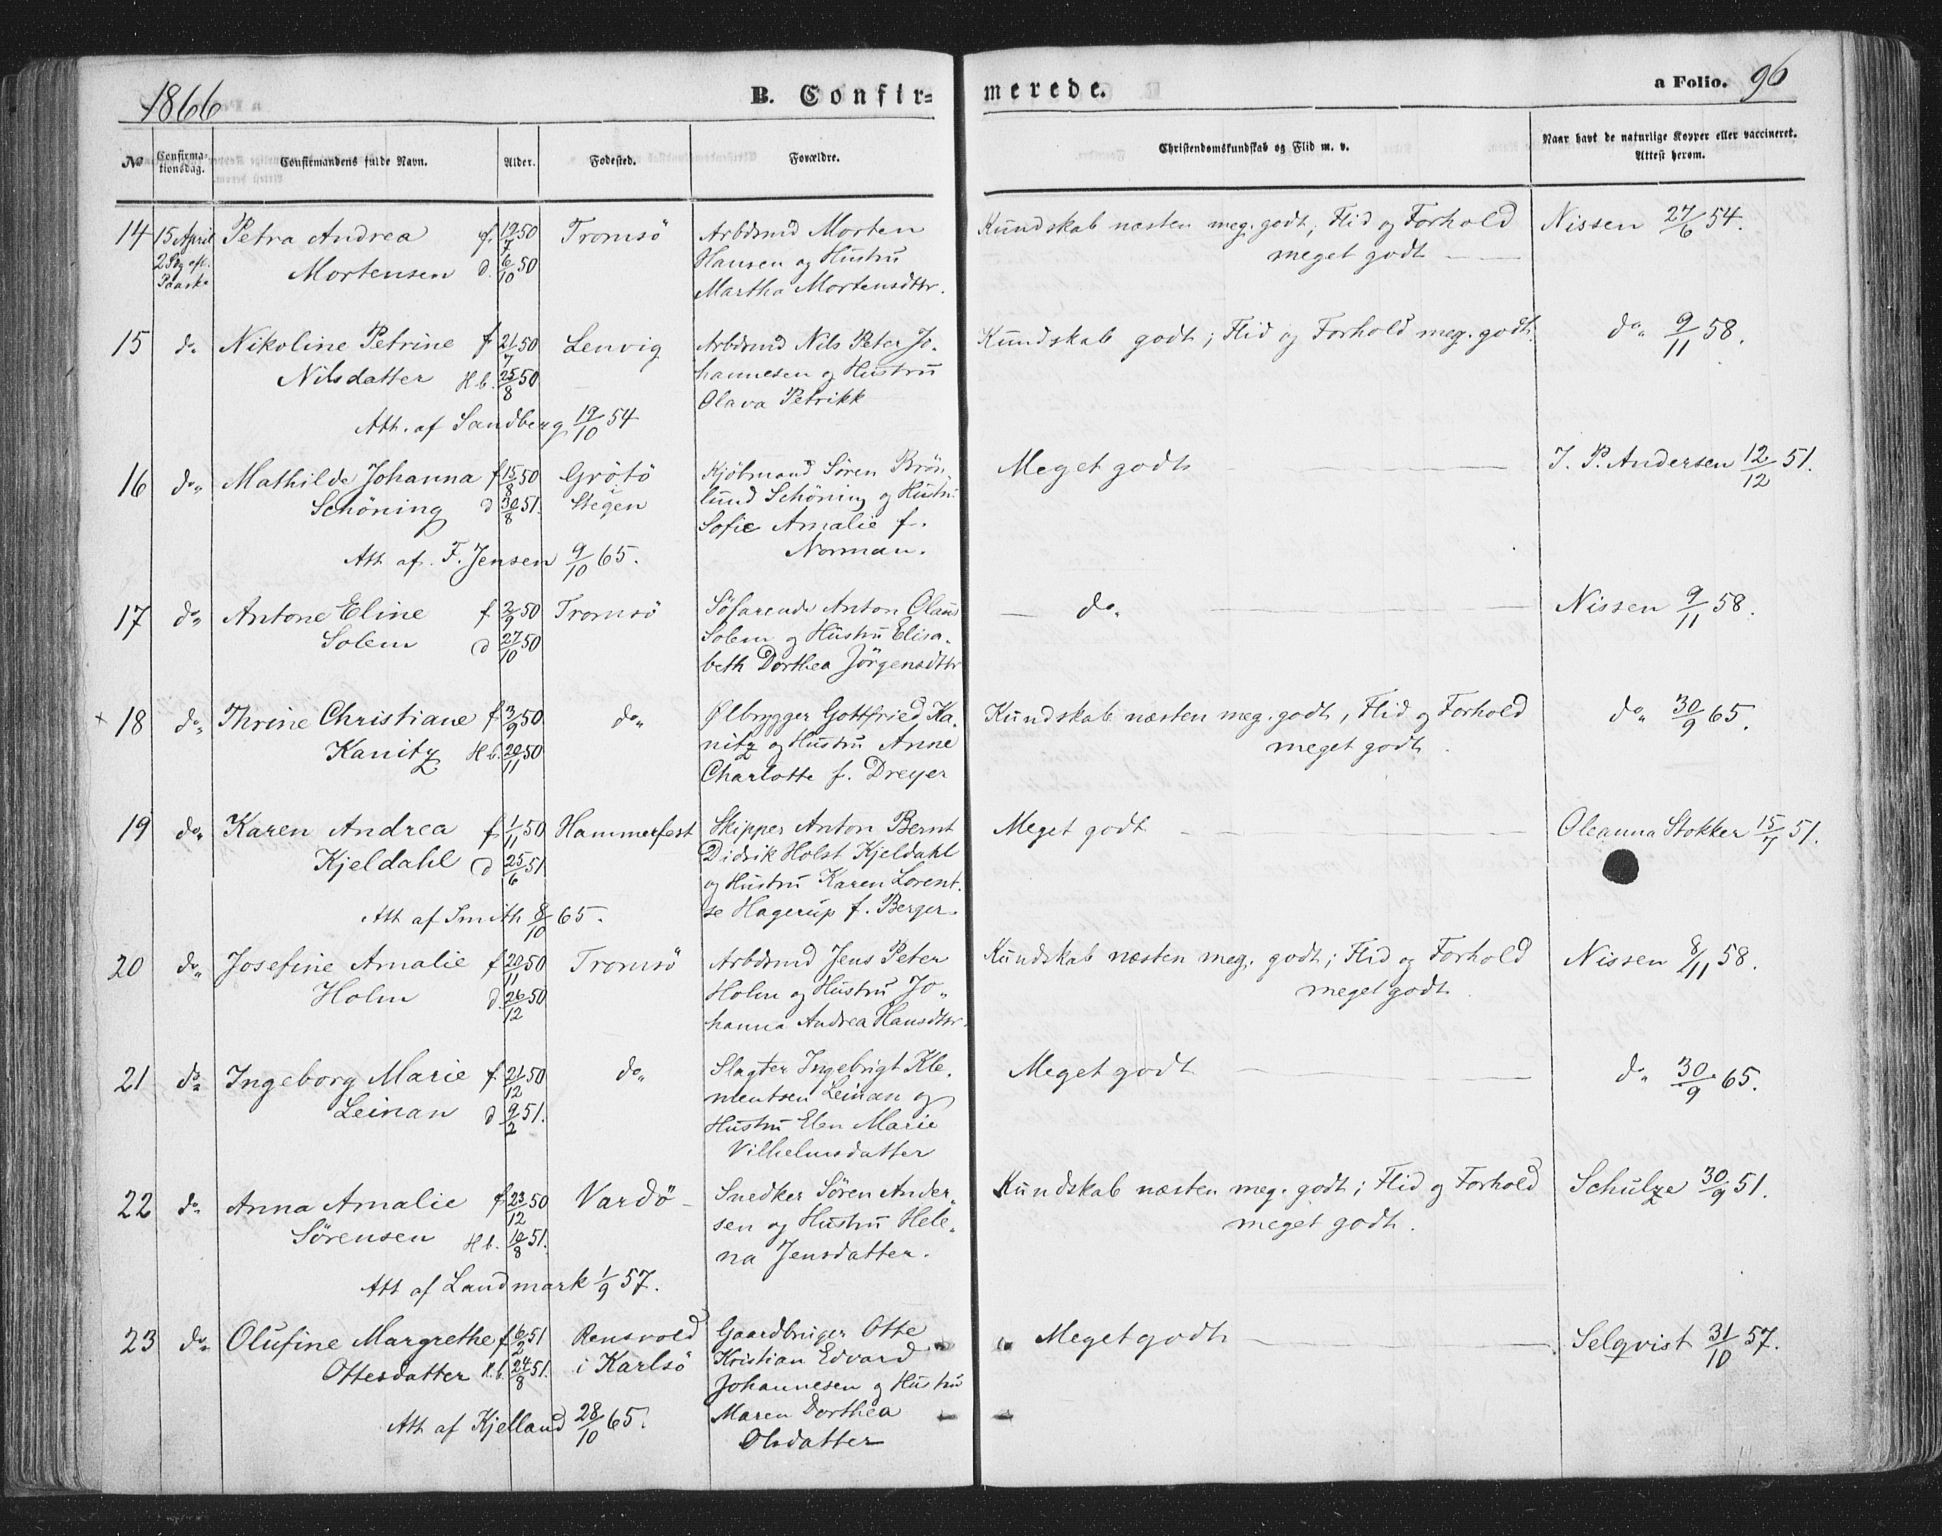 1866 B. Confir= merede. a Folio. 96
No Confirma-tionsdag. Confirmandens fulde Navn. Alder. Fødested. Forældre. Christendomskundskab og Flid m. v. Naar havt de naturlige Kopper eller vaccineret. Attest herom.
14 15 April Petra Andrea f. 19/7 50 Tromsö Arbdsmd Morten Kundskab næsten meg. godt; Flid og Forhold Nissen 27/6 54.
2 Sdg eft. Paaske Mortensen d. 6/10 50 Hansen og Hustru meget godt
Martha Mortensdttr.
15 do Nikoline Petrine f 21/7 50 Lenvig Arbdsmd Nils Peter Jo- Kundskab godt; Flid og Forhold meg. godt. do 9/11 58.
Nilsdatter H.b. 25/8 50 hannesen og Hustru
Olava Petrikk
Att. af Sandberg 19/10 54
16 do Mathilde Johanna f 15/8 50 Grötö Kjöbmand Sören Brön- Meget godt J. P. Andersen 12/12 51.
Schöning d 30/8 51. Stegen lund Schöning og Hustru
Sofie Amalie f.
Norman.
Att af F. Jensen 9/10 65.
17 do Antone Eline f 2/9 50 Tromsö Söfarende Anton Olaus do Nissen 9/11 58.
Solem d 27/10 50 Solem og Hustru Elisa-
beth Dorthea Jörgensdttr
x 18 do Thrine Christiane f. 3/9 50 do Ølbrygger Gottfried Ka- Kundskab næsten meg. godt, Flid og Forhold do 30/9 65.
Kanitz H.b. 20/11 50 nitz og Hustru Anne meget godt.
Charlotte f. Dreyer
19 do Karen Andrea f. 1/11 50 Hammerfest Skipper Anton Bernt Meget godt Oleanna Stokker 15/7 51.
Kjeldahl d 25/6 51 Didrik Holst Kjeldahl
og Hustru Karen Lorent-
Att af Smith 8/10 65. se Hagerup f. Berger.
20 do Josefine Amalie f 20/11 50 Tromsö Arbdsmd Jens Peter Kundskab næsten meg. godt; Flid og Forhold Nissen 8/11 58.
Holm d. 26/12 50 Holm og Hustru Jo- meget godt.
hanna Andrea Hansdttr.
21 do Ingeborg Marie f. 21/12 50 do Slagter Ingebrigt Kle- Meget godt do 30/9 65.
Leinan d 9/2 51. mentsen Leinan og
Hustru Elen Marie
Vilhelmsdatter
22 do Anna Amalie f 23/12 50 Vardö Snedker Sören Ander- Kundskab næsten meg. godt; Flid og Forhold Schulze 30/9 51.
Sörensen H.b. 16/8 51. sen og Hustru Hele- meget godt.
na Jensdatter.
Att af Landmark 1/9 57.
23 do Olufine Margrethe f 6/2 51 Rensvold Gaardbruger Otte Meget godt Selqvist 31/10 57.
Ottesdatter H.b. 24/8 51. i Karlsö Kristian Edvard
Johannesen og Hustru
Att af Kjelland 28/10 65. Maren Dorthea
Olsdatter